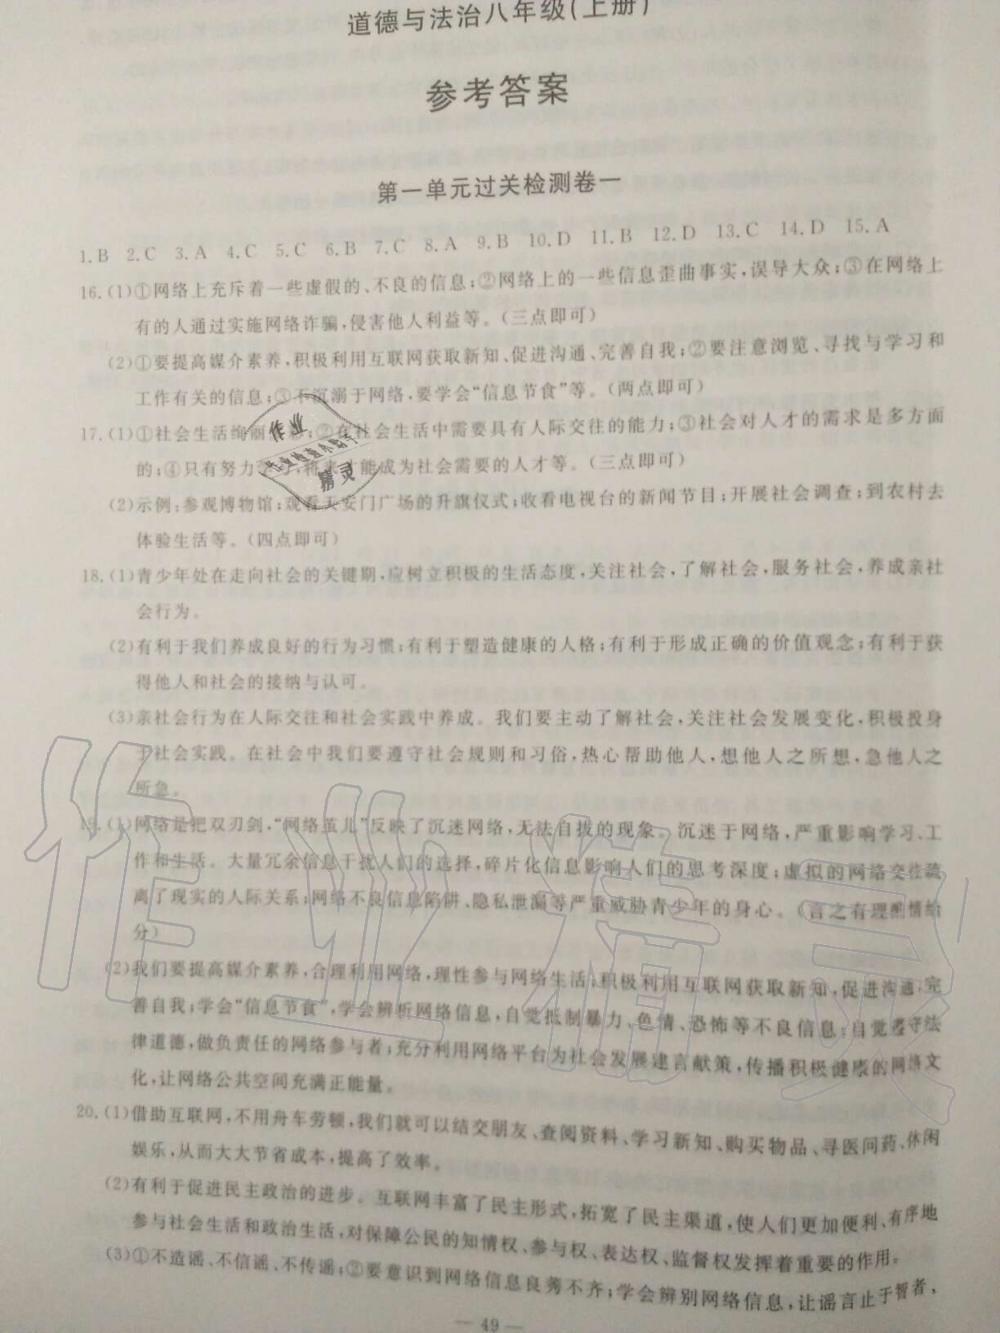 道德与法治八年级(上册)
参考答案
第一单元过关检测卷一
1.B 2.C 3.A 4.C 5.C 6.B 7.C 8.A 9.B 10.D 11.B 12.D 13.C 14.D 15.A
16.(1)①网络上充斥着一些虚假的、不良的信息;②网络上的一些信息歪曲事实,误导大众;③在网络上
有的人通过实施网络诈骗,侵害他人利益等。(三点即可)
(2)①要提高媒介素养,积极利用互联网获取新知、促进沟通、完善自我;②要注意浏览、寻找与学习和
工作有关的信息;③不沉溺于网络,要学会“信息节食”等。(两点即可)
17.(1)①社会生活绚丽多彩;②在社会生活中需要具有人际交往的能力;③社会对人才的需求是多方面
的;④只有努力学习,将来才能成为社会需要的人才等。(三点即可)
(2)示例:参观博物馆;观看天安门广场的升旗仪式;收看电视台的新闻节目;开展社会调查;到农村去
体验生活等。(四点即可)
18.(1)青少年处在走向社会的关键期,应树立积极的生活态度,关注社会,了解社会,服务社会,养成亲社
会行为。
(2)有利于我们养成良好的行为习惯;有利于塑造健康的人格;有利于形成正确的价值观念;有利于获
得他人和社会的接纳与认可。
(3)亲社会行为在人际交往和社会实践中养成。我们要主动了解社会,关注社会发展变化,积极投身
于社会实践。在社会中我们要遵守社会规则和习俗,热心帮助他人,想他人之所想,急他人之
所急。
19.(1)网络是把双刃剑,“网络茧儿”反映了沉迷网络,无法自拔的现象。沉迷于网络,严重影响学习、工
作和生活。大量冗余信息干扰人们的选择,碎片化信息影响人们的思考深度;虚拟的网络交往疏
离了现实的人际关系;网络不良信息陷阱、隐私泄漏等严重威胁青少年的身心。(言之有理酌情给
分)
(2)我们要提高媒介素养,合理利用网络,理性参与网络生活;积极利用互联网获取新知,促进沟通,完
善自我;学会“信息节食”,学会辨析网络信息,自觉抵制暴力、色情、恐怖等不良信息;自觉遵守法
律道德,做负责任的网络参与者;充分利用网络平台为社会发展建言献策,传播积极健康的网络文
化,让网络公共空间充满正能量。
20.(1)借助互联网,不用舟车劳顿,我们就可以结交朋友、查阅资料、学习新知、购买物品、寻医问药、休闲
娱乐,从而大大节省成本,提高了效率。
(2)有利于促进民主政治的进步。互联网丰富了民主形式,拓宽了民主渠道,使人们更加便利、有序地
参与社会生活和政治生活,对保障公民的知情权、参与权、表达权、监督权发挥着重要的作用。
(3)①不造谣、不信谣、不传谣;②要意识到网络信息良莠不齐;学会辨别网络信息,让谣言止于智者,
— 49 —
作业精灵
作业
精灵